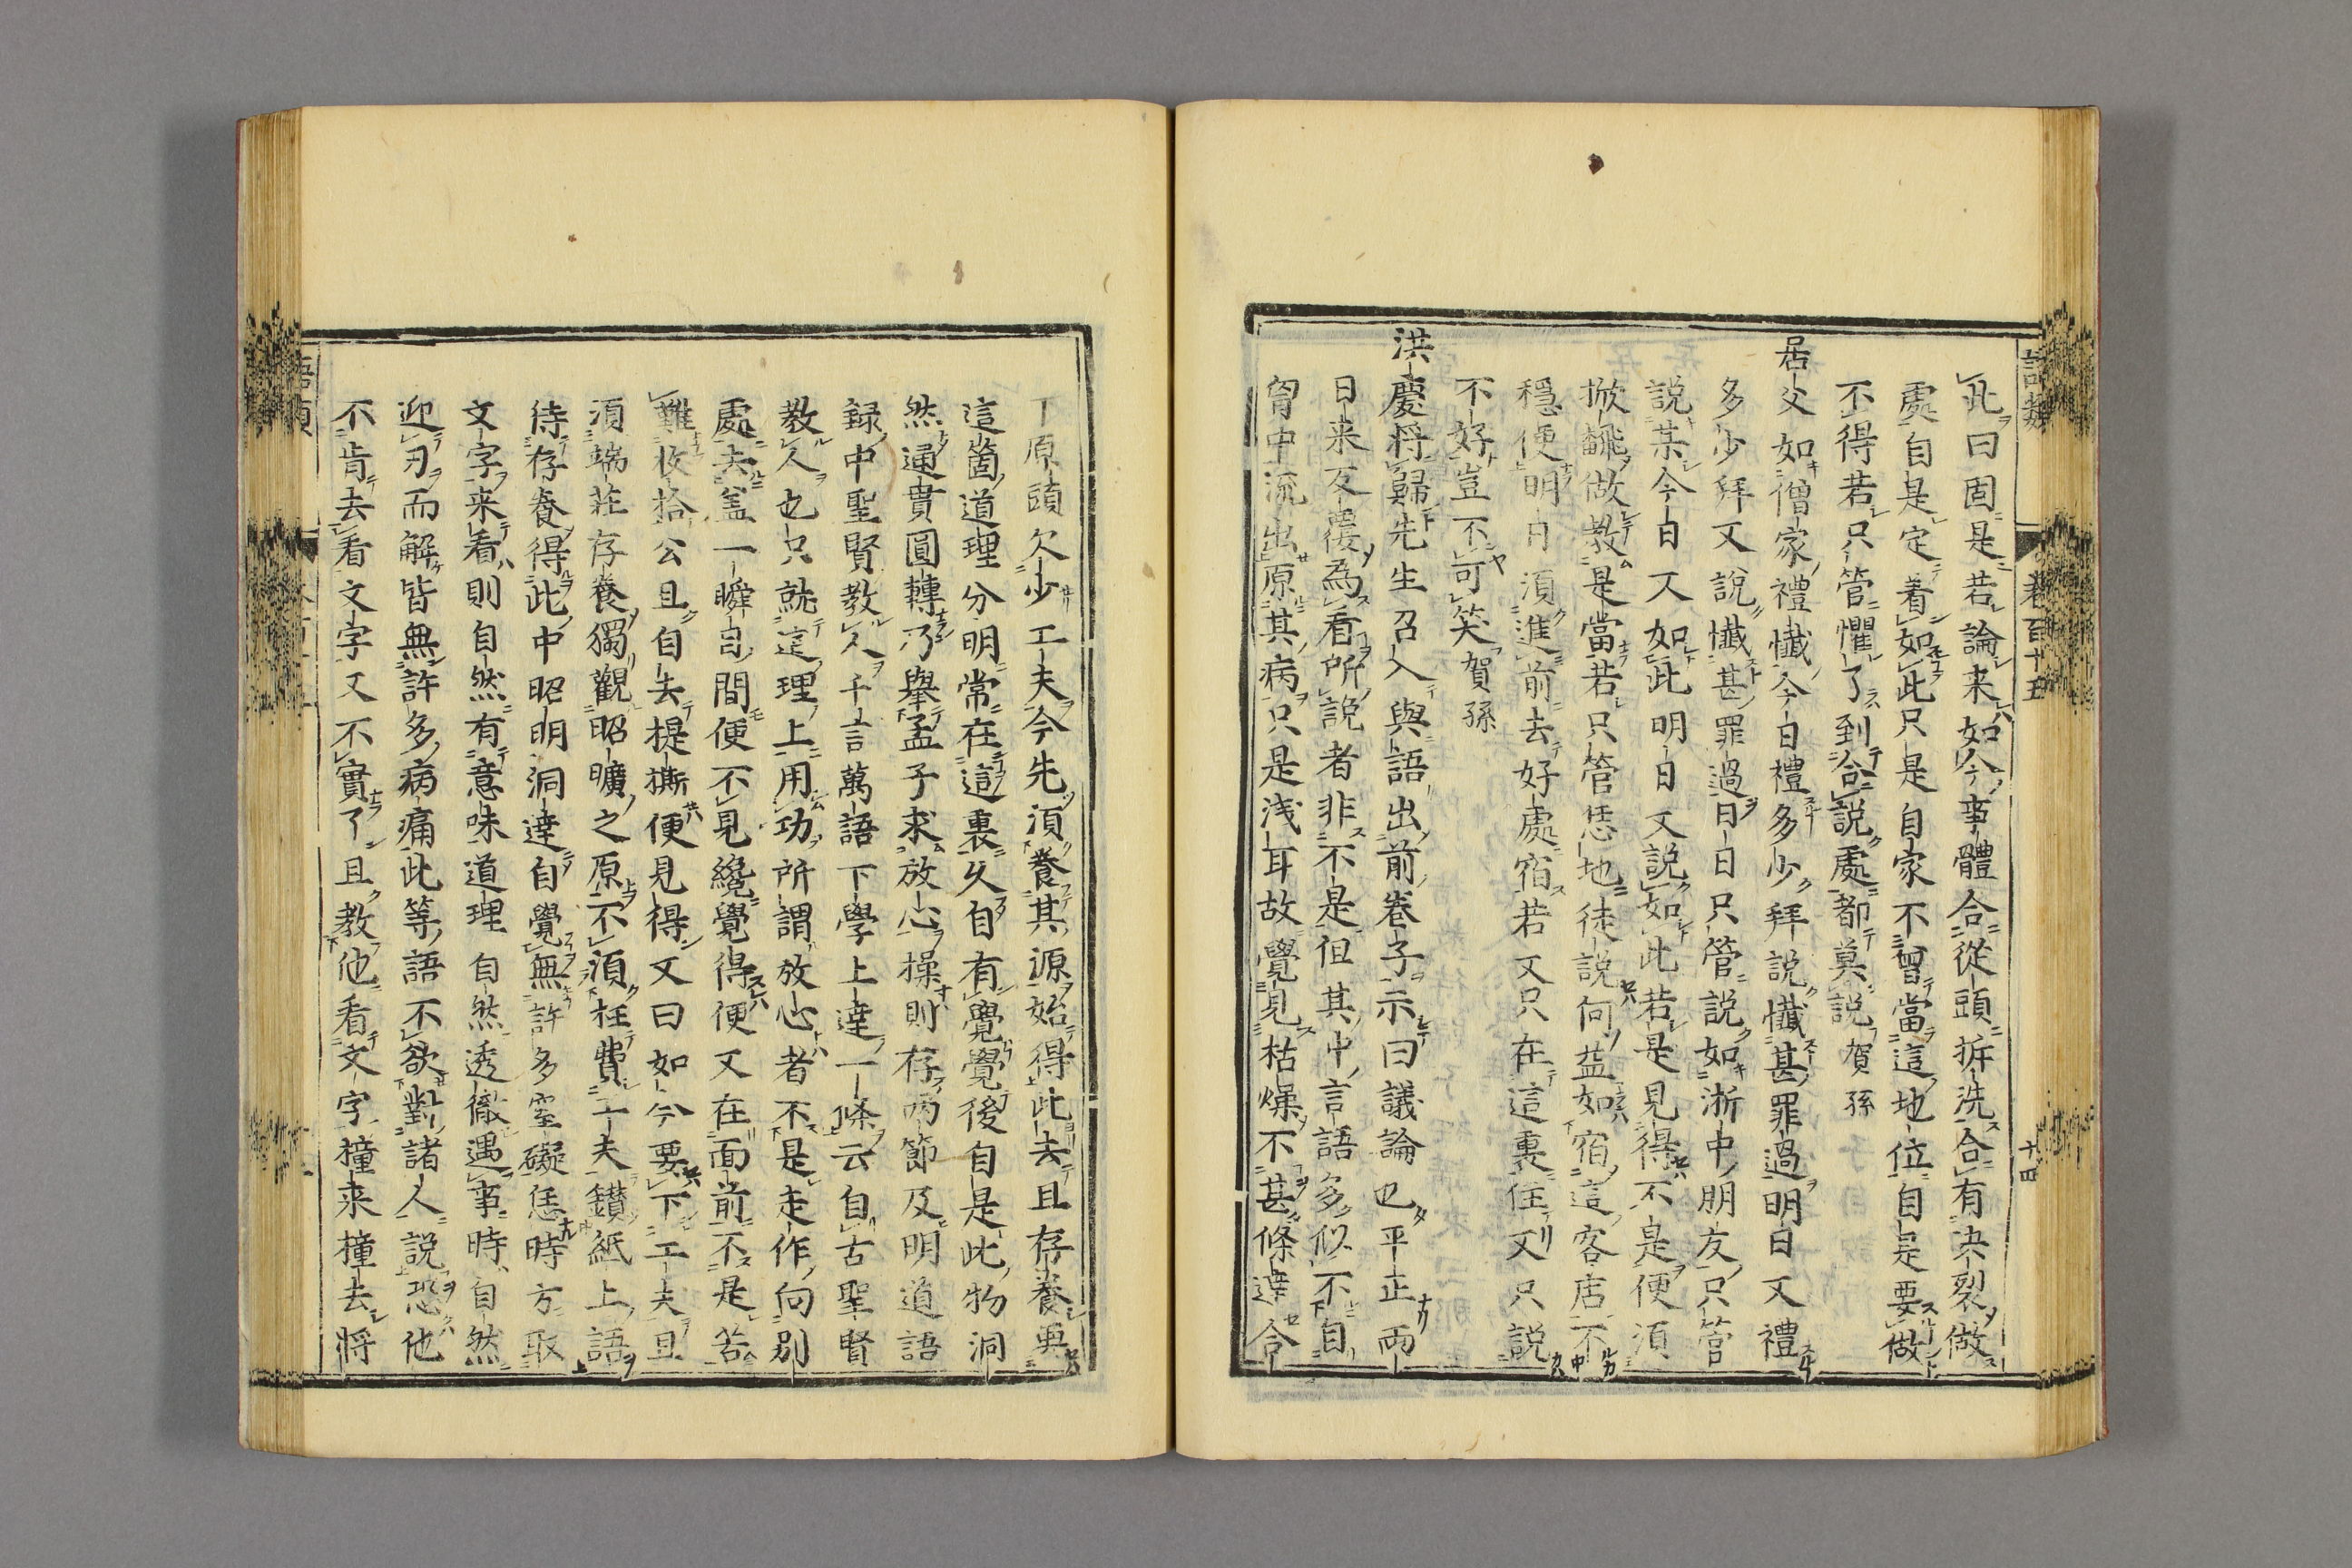 此曰固是若論来如今事體合從頭拆洗合有决裂做
處自是定著如此只是自家不曾當這地位自是要做
不得若只管懼了到合說處都莫說賀孫
居父如僧家禮懺今日禮多少拜說懺甚罪過明日又禮
多少拜又說懺甚罪過日日只管說如浙中朋友只管
說某今日又如此明日又說如此若是見得不是便須
掀飜做教是當若只管恁地徒說何益如宿這客店不
穩便明日須進前去好處宿若又只在這裏住又只說
不好豈不可笑賀孫
洪慶将歸先生召入與語出前卷子示曰議論也平正兩
日来反覆為看所說者非不是但其中言語多似不自
胷中流出原其病只是浅耳故覺見枯燥不甚條達合
下原頭欠少工夫今先須養其源始得此去且存養要
這箇道理分明常在這裏久自有覺覺後自是此物洞
然通貫圓轉乃舉孟子求放心操則存兩節及明道語
録中聖賢教人千言萬語下學上達一條云自古聖賢
教人也只就這理上用功所謂放心者不是走作向別
處去盖一瞬目間便不見纔覺得便又在面前不是苦
難收拾公且自去提撕便見得又曰如今要下工夫且
須端莊存養獨觀昭曠之原不須枉費工夫鑚紙上語
待存養得此中昭明洞達自覺無許多窒礙恁時方取
文字来看則自然有意味道理自然透徹遇事時自然
迎刃而解皆無許多病痛此等語不欲對諸人說恐他
不肯去看文字又不實了且教他看文字撞来撞去将
語類
卷百十五
十四